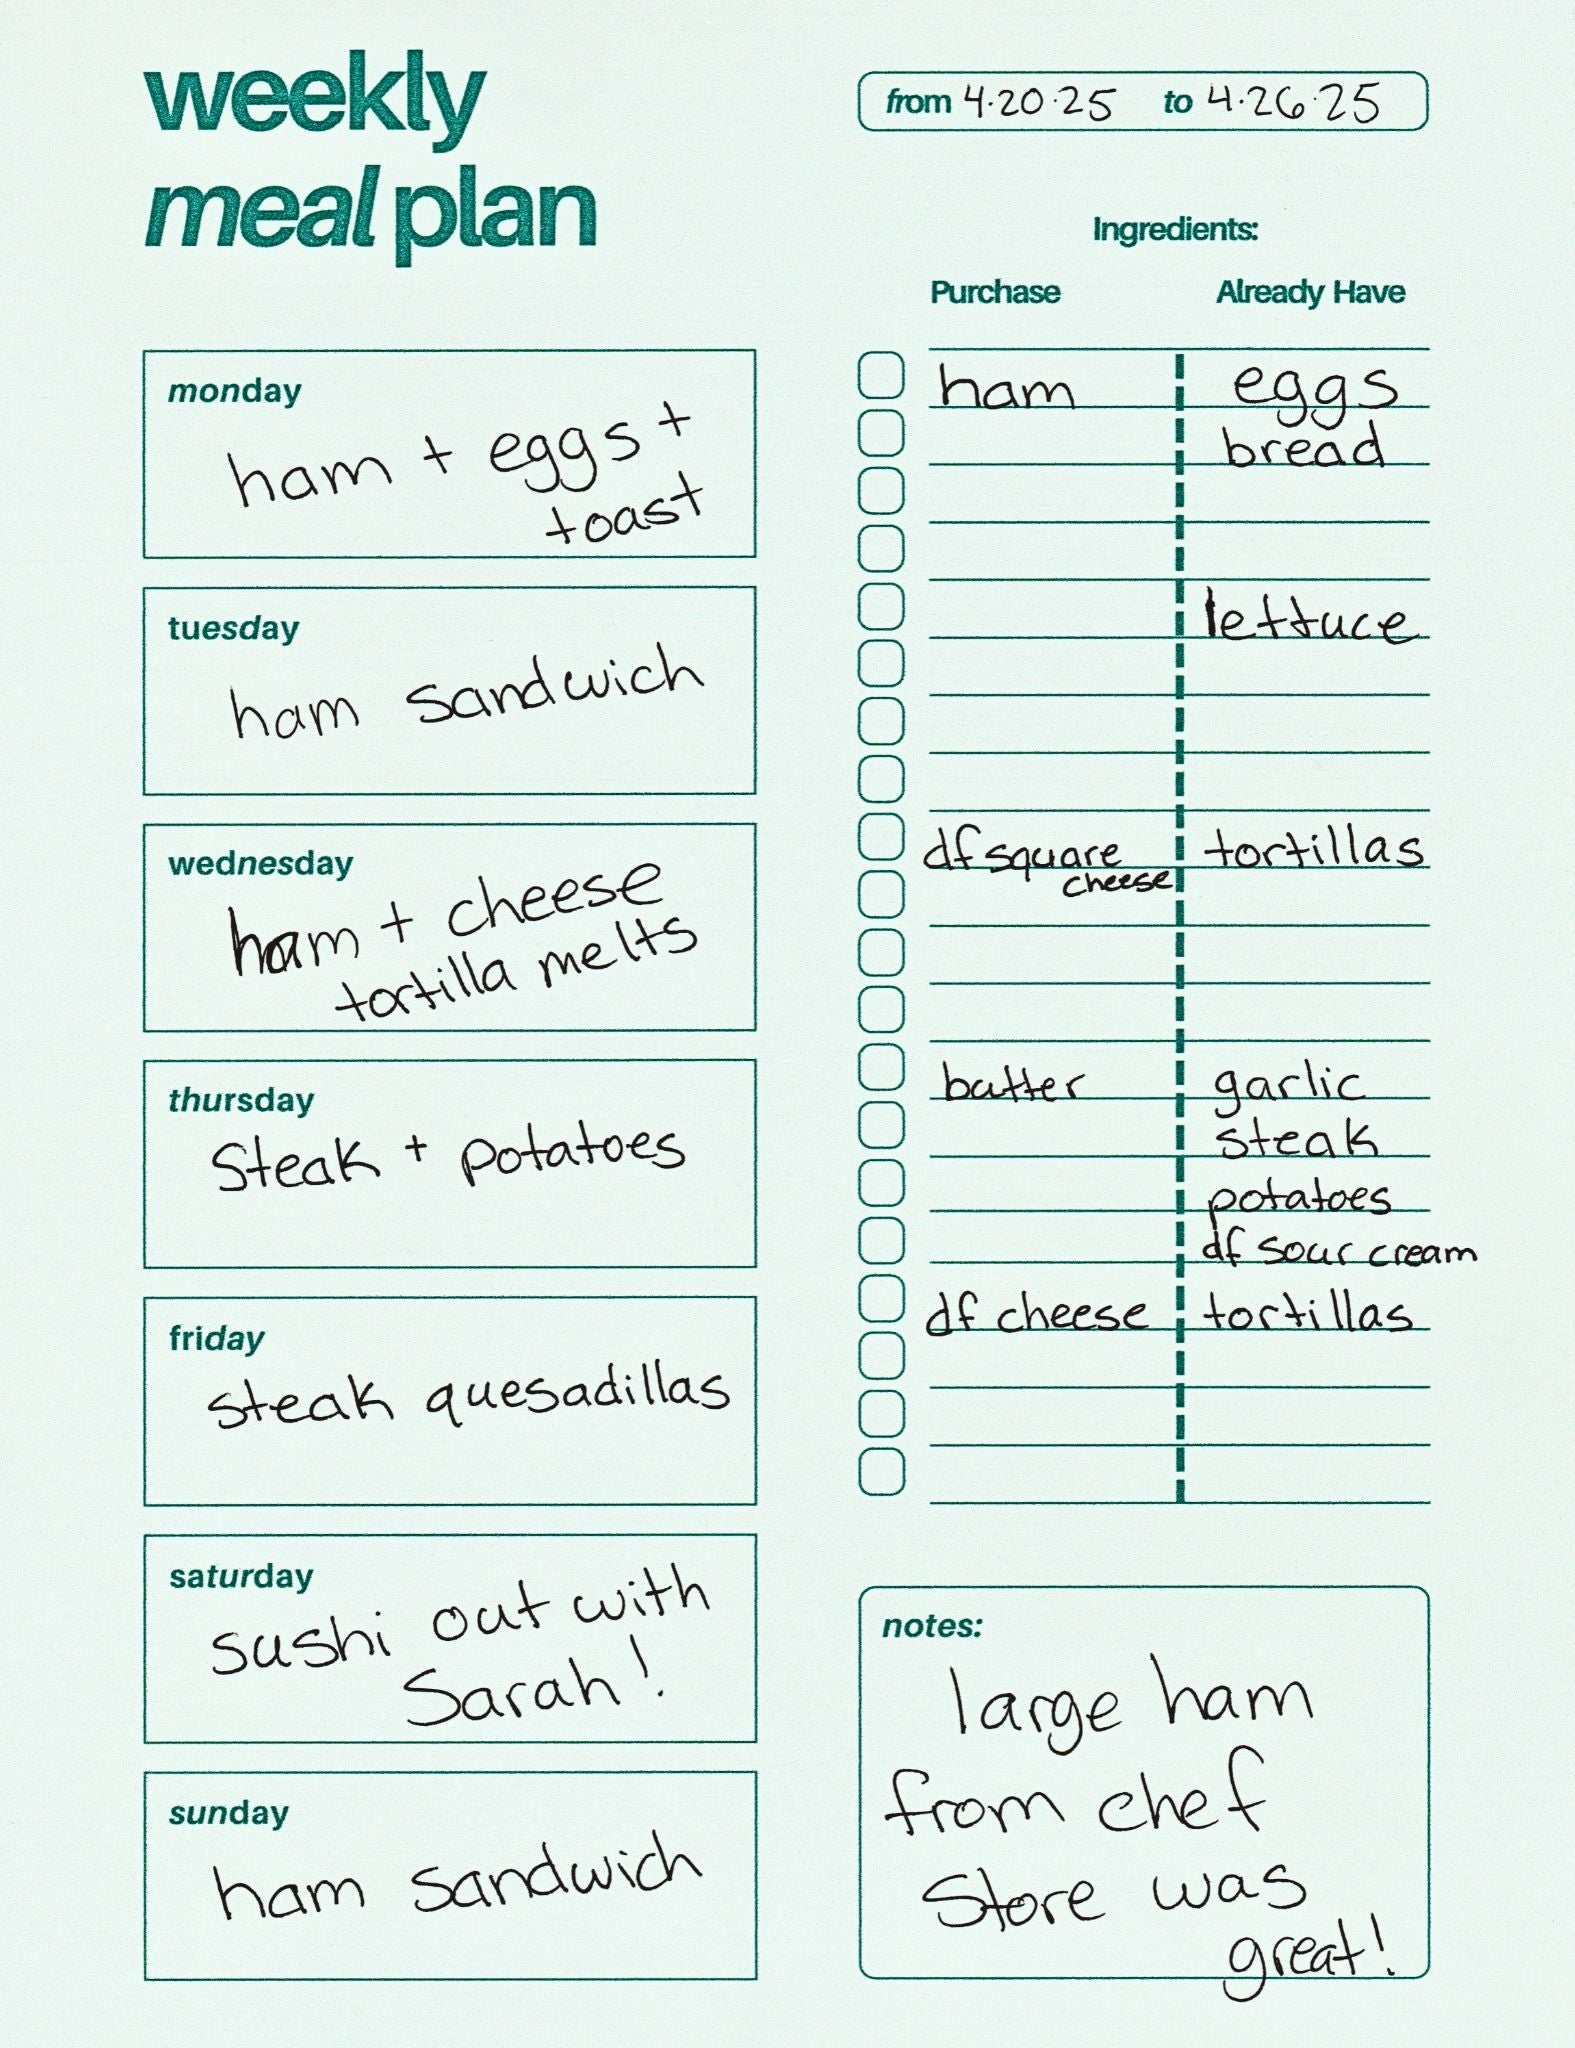 weekly
meal plan
from 4.20.25 to 4.26.25
monday
ham + eggs +
toast
tuesday
ham sandwich
wednesday
ham + cheese
tortilla melts
thursday
Steak + potatoes
friday
steak quesadillas
saturday
sushi out with
Sarah!
sunday
ham sandwich
Ingredients:
Purchase Already Have
ham eggs
bread
lettuce
df square tortillas
cheese
butter garlic
steak
potatoes
df sour cream
df cheese tortillas
notes:
large ham
from chef
Store was
great!